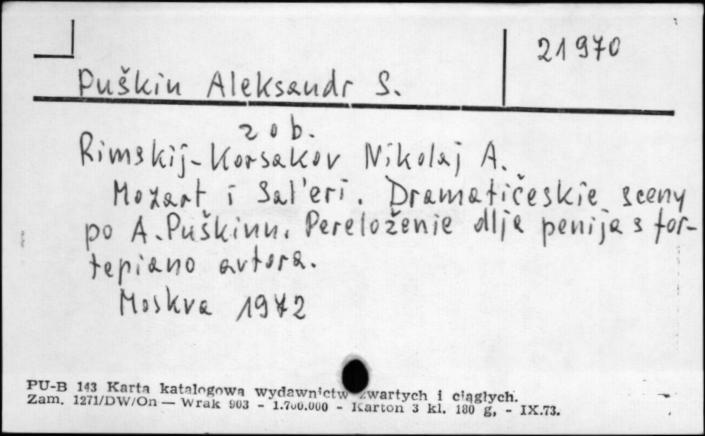 21970
Puškin Aleksandr S.
zob.
Rimskij-Korsakov Nikolaj A.
Mozart i Sal'eri. Dramatičeskie sceny
po A. Puškinu. Pereloženie dlja penija s for-
tepiano avtora.
Moskva 1972
PU-B 143 Karta katalogowa wydawnictw zwartych i ciągłych.
Zam. 1271/DW/On — Wrak 903 - 1.700.000 - Karton 3 kl. 180 g, - IX.73.